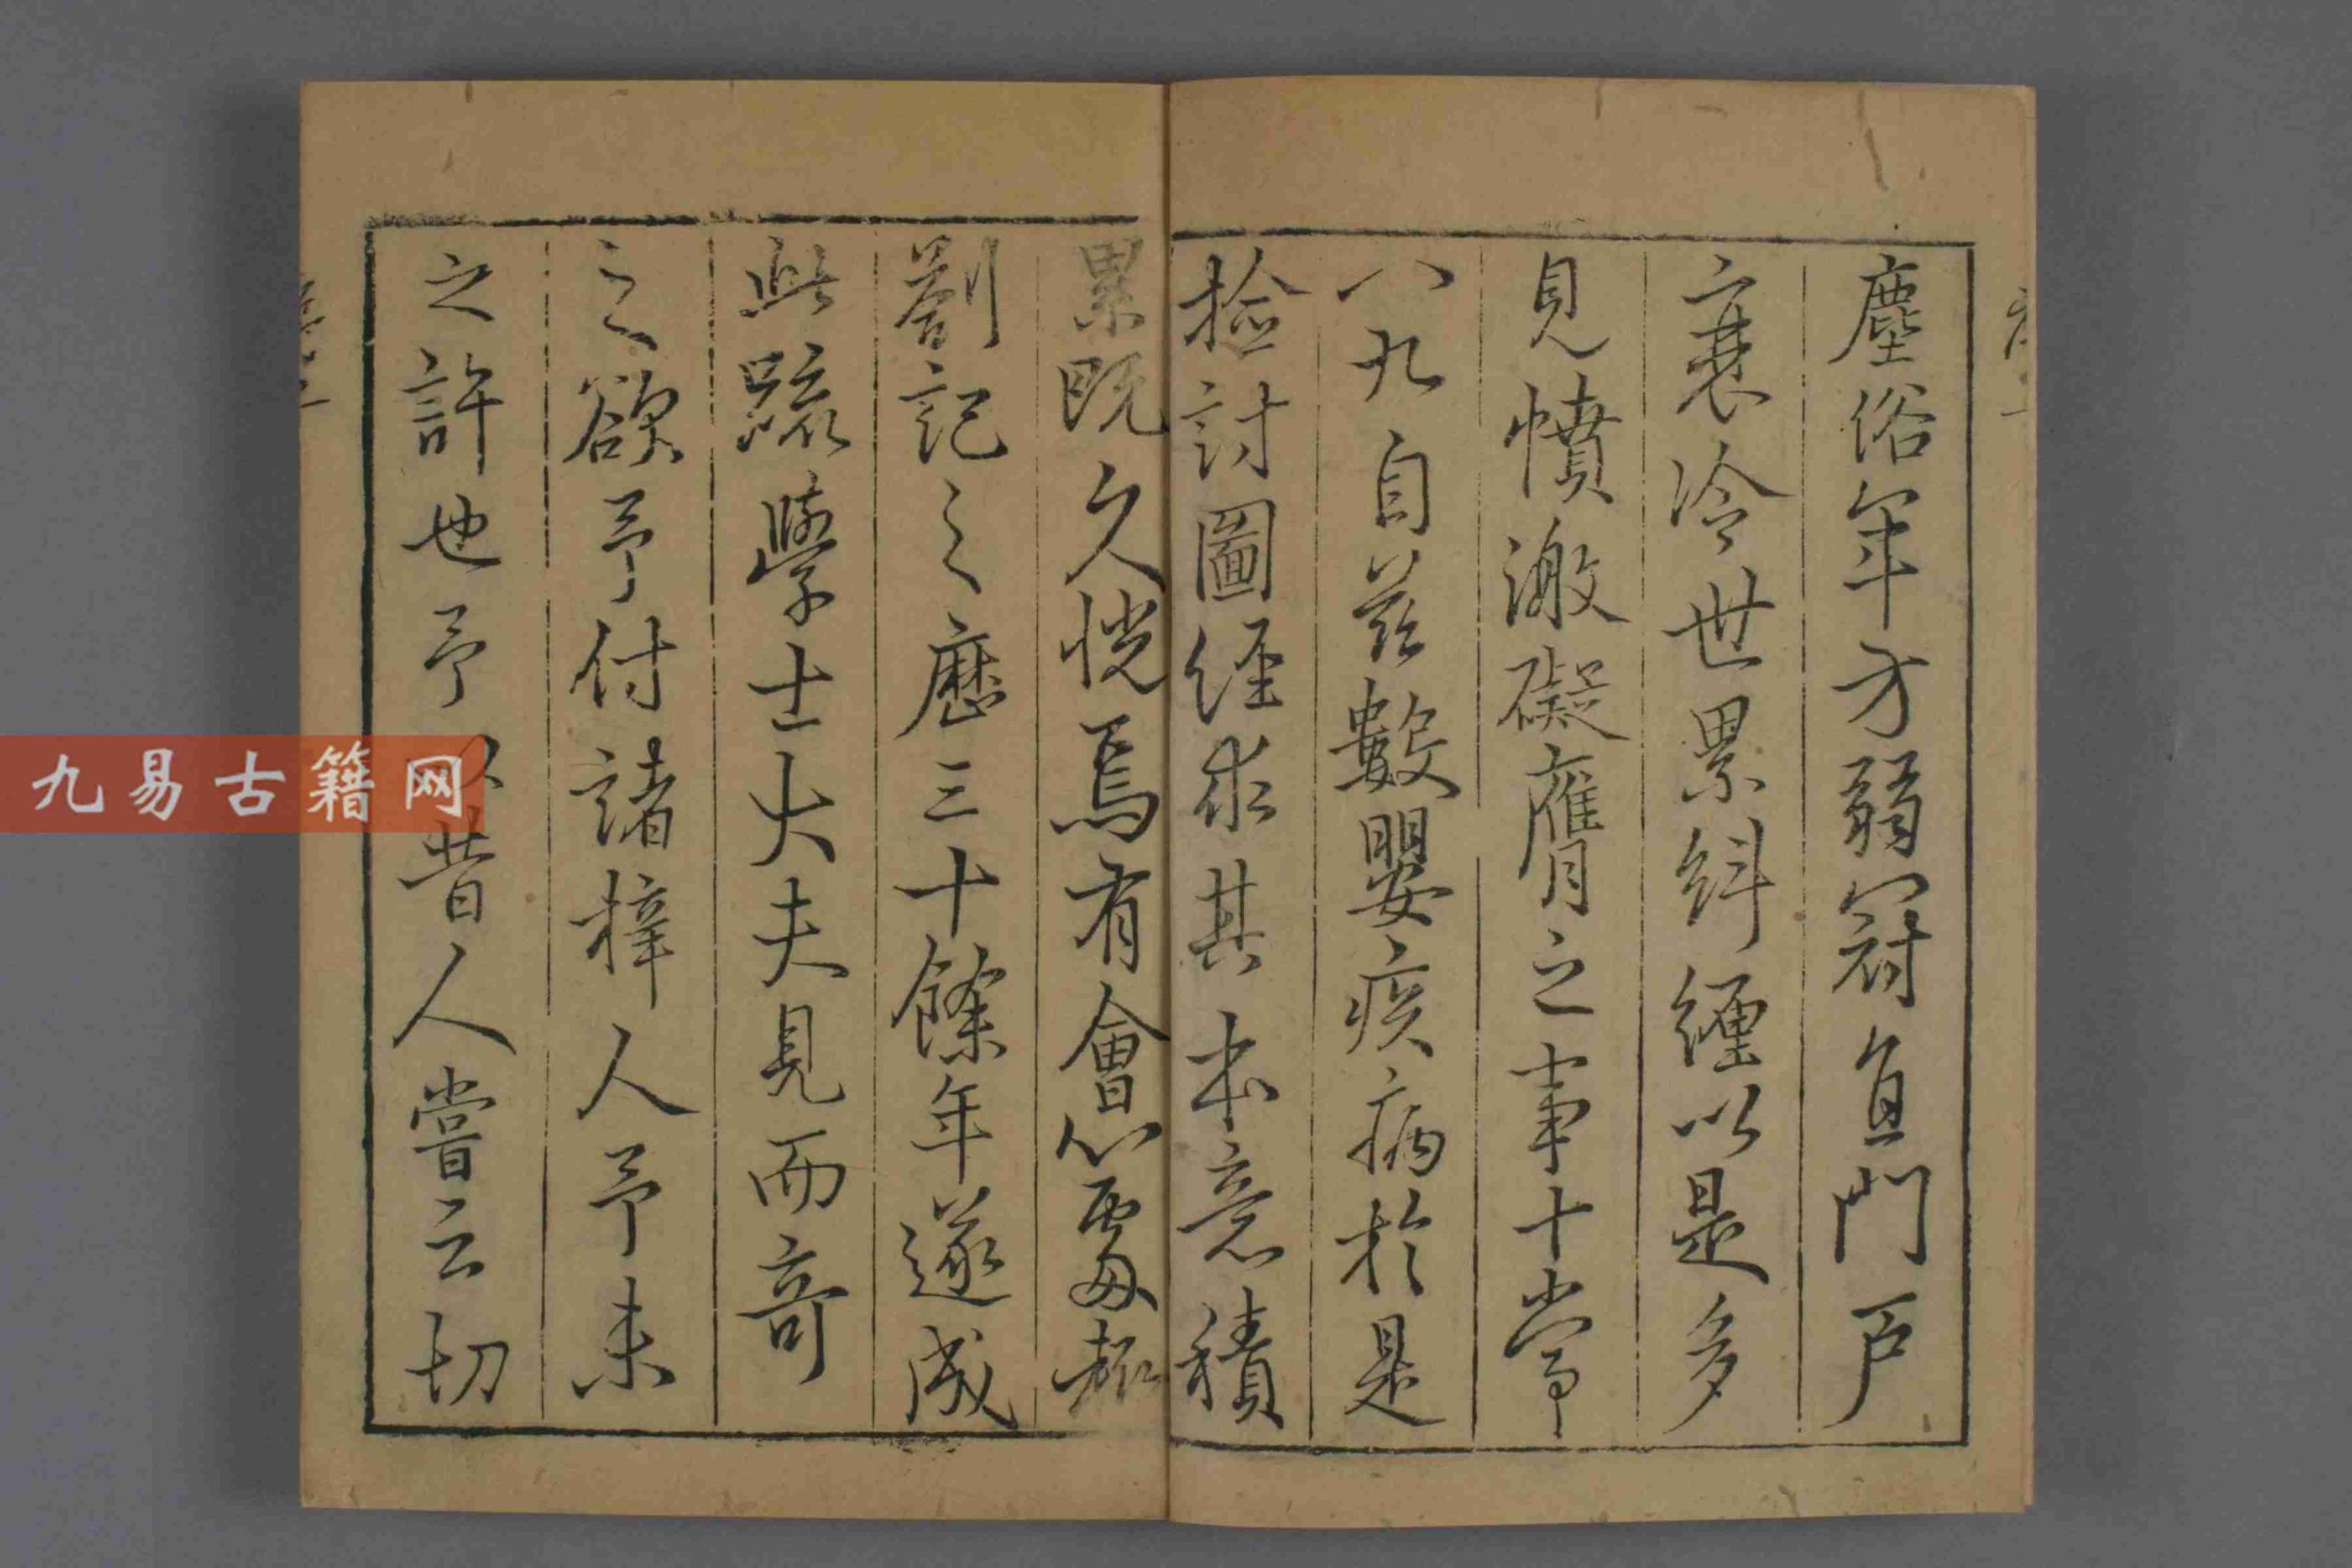 塵俗年方弱冠負門戶
衰冷世累糾纏以是多
見憤激礙膺之事十常
八九自茲數嬰疾病於是
撿討圖經求其本意積
累既久恍焉有會心處輒
劄記之歷三十餘年遂成
此疏學士大夫見而奇
之欲予付諸梓人予未
之許也予以昔人嘗云切
九易古籍网